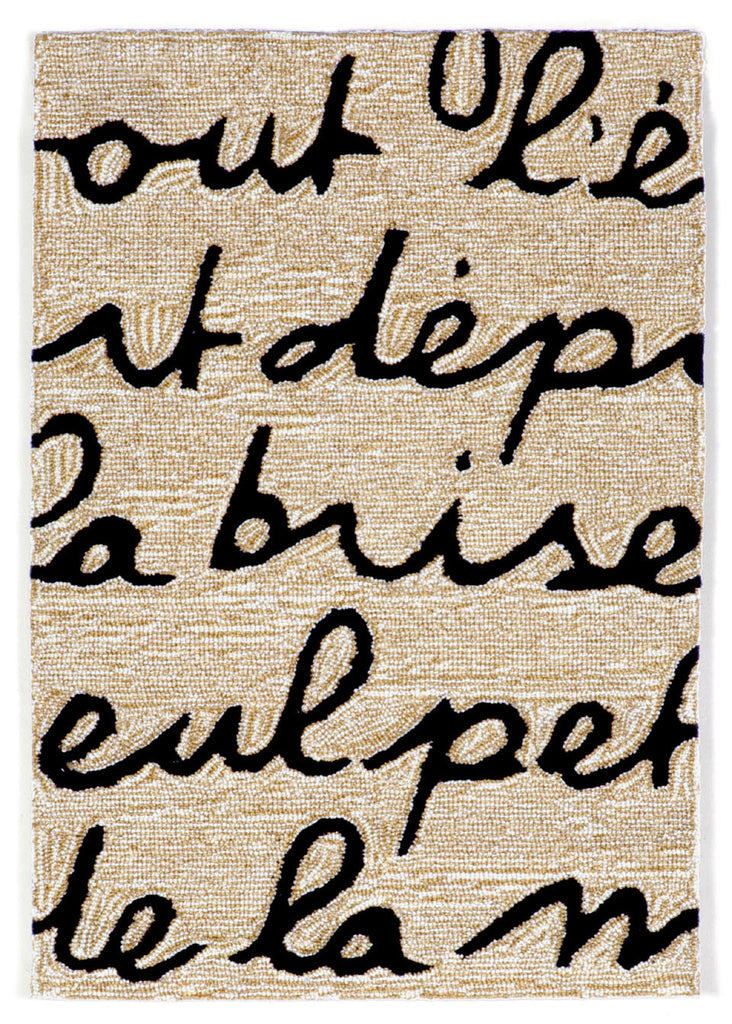 out l'é
it dépu
la brise
eul pet
te la m